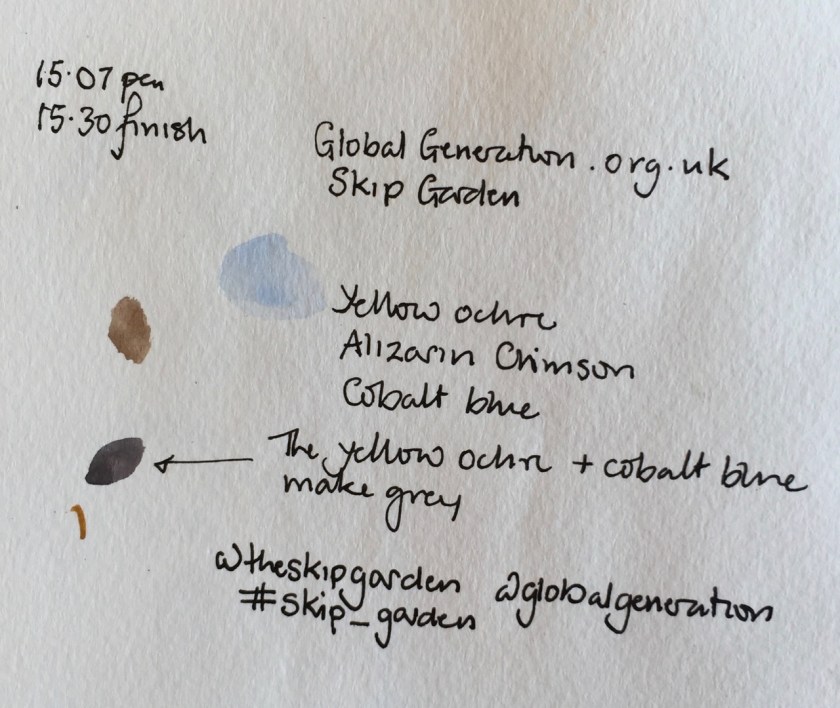 15.07 pen
15.30 finish
Global Generation.org.uk
Skip Garden
Yellow ochre
Alizarin Crimson
Cobalt blue
The yellow ochre + cobalt blue
make grey
@theskipgarden @globalgeneration
#skip_garden